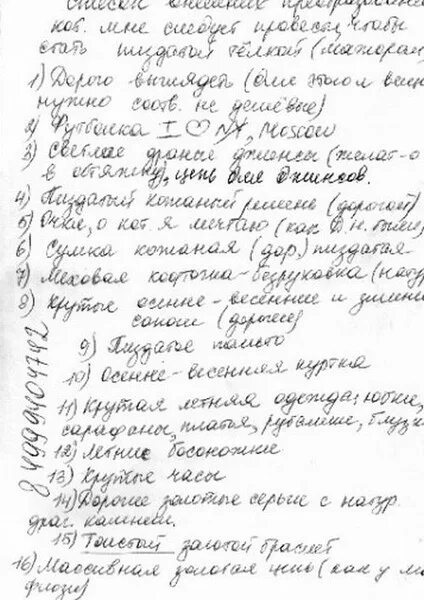 Список внешних преобразований
кот. мне следует провести, чтобы
стать пиздатой тёлкой (мажоркой)
1) Дорого выглядеть (для этого вещи
нужно соотв. не дешёвые)
2) Футболка I ♡ NY, Moscow
3) Светлые драные джинсы (желат-о
в обтяжку), цепь для джинсов.
4) Пиздатый кожаный ремень (дорогой)
5) Очки, о кот. я мечтаю (как
6) Сумка кожаная (дор.) пиздатая
7) Меховая кофточка-безрукавка (натур
8) Крутые осенне-весенние и зимние
сапоги (дорогие)
9) Пиздатое пальто
10) Осенне-весенняя куртка
11) Крутая летняя одежда: юбки,
сарафаны, платья, рубашки, блузки
12) Летние босоножки
13) Крутые часы
14) Дорогие золотые серьги с натур.
драг. камнем.
15) Толстый золотой браслет
16) Массивная золотая цепь (как у
84999404742